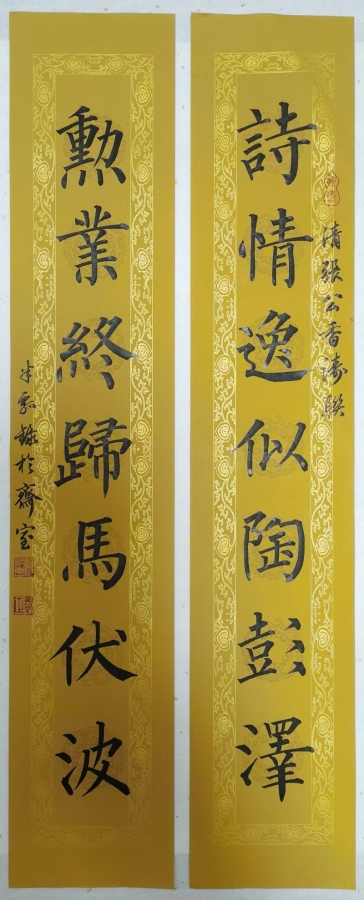 詩情逸似陶彭澤
清張公香濤聯
勳業終歸馬伏波
半瓢錄於齋室